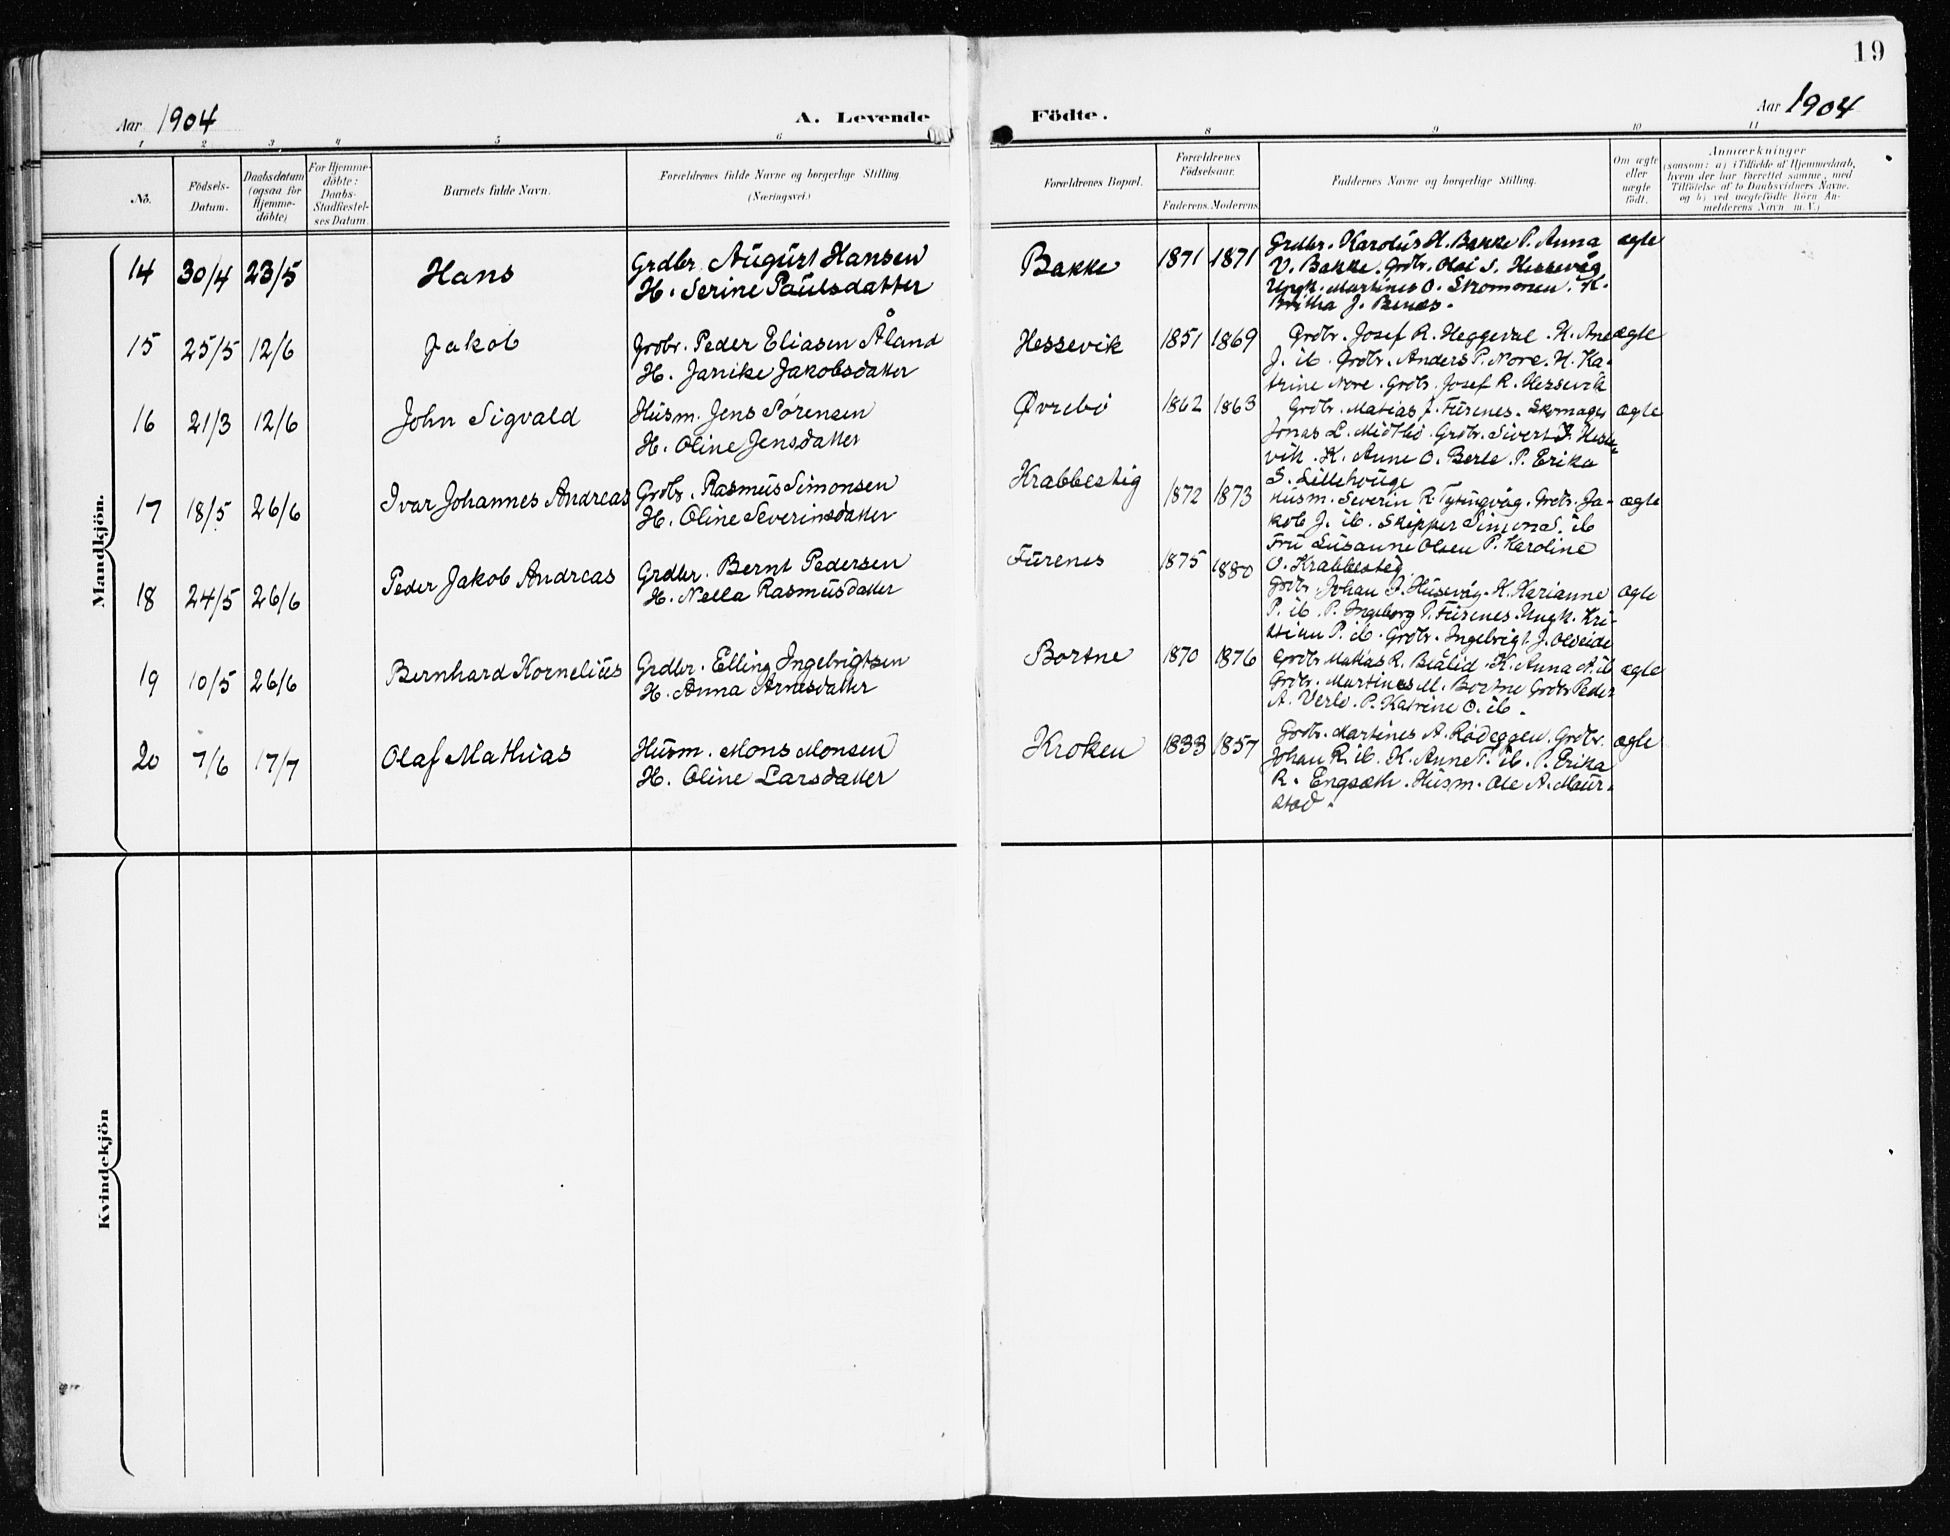 19
Aar 1904
A. Levende Födte.
Aar 1904
1 2 3 4 5 6 8 9 10 11
No.
Födsels-
Datum.
Daabsdatum
(ogsaa for
Hjemme-
döbte)
For Hjemme-
döbte:
Daabs-
Stadfæstel-
ses Datum.
Barnets fulde Navn.
Forældrenes fulde Navne og borgerlige Stilling
(Næringsvei.)
Forældrenes Bopæl.
Forældrenes
Födselsaar.
Faderens. Moderens
Faddernes Navne og borgerlige Stilling.
Om ægte
eller
uægte
födt.
Anmærkninger
(saasom: a) i Tilfælde af Hjemmedaab,
hvem der har forrettet samme, med
Tilföielse af to Daabsvidners Navne.
og b) ved uægtefödte Börn An-
melderens Navn m. V.)
Mandkjön.
14 30/4 23/5 Hans
Grdbr. August Hansen
H. Serine Paulsdatter
Bakke 1871 1871
Grdbr. Karolus H. Bakke P. Anna
V. Bakke. Grdbr. Olai S. Hessevåg
Ungk. Martines O. Skommen. K.
Britha J. Benæs.
ægte
15 25/5 12/6 Jakob
Grdbr. Peder Eliasen Åland
H. Janike Jakobsdatter
Hessevik 1851 1869
Grdbr. Josef R. Heggedal. K. Ane
J. ib. Grdbr. Anders P. Nore. K. Ka-
trine Nore. Grdbr. Josef R. Hessevik
ægte
16 21/3 12/6 John Sigvald
Husm. Jens Sørensen
H. Oline Jensdatter
Øvrebö 1862 1863
Grdbr. Matias J. Furenes. Skomager
Jonas L. Midtbö. Grdbr. Sivert J. Hesse-
vik. K. Anne O. Berle. P. Erika
S. Lillehouge
ægte
17 18/5 26/6 Ivar Johannes Andreas
Grdbr. Rasmus Simonsen
H. Oline Severinsdatter
Krabbestig 1872 1873
Husm. Severin R. Tytingvåg. Grdbr. Ja-
kob J. ib. Skipper Simon S. ib
Fru Susanne Olsen P. Karoline
O. Krabbestig
ægte
18 24/5 26/6 Peder Jakob Andreas
Grdbr. Bernt Pedersen
H. Nella Rasmusdatter
Furenes 1875 1880
Grdbr. Johan J. Husevåg. K. Karianne
P. ib. P. Ingeborg P. Furenes. Ungk. Kri-
stian P. ib. Grdbr. Ingebrigt J. Oldeide
ægte
19 10/5 26/6 Bernhard Kornelius
Grdbr. Elling Ingebrigtsen
H. Anna Arnesdatter
Bortne 1870 1876
Grdbr. Matias R. Blålid. K. Anna A. ib
Grdbr. Martines M. Bortne Grdbr Peder
A. Verlo. P. Katrine O. ib.
ægte
20 7/6 17/7 Olaf Mathias
Husm. Mons Monsen
H. Oline Larsdatter
Kroken 1833 1857
Grdbr. Martines A. Rödeggen. Grdbr.
Johan R. ib. K. Anne P. ib. P. Erika
R. Engsæth. Husm. Ole A. Maur-
stad.
ægte
Kvindekjön